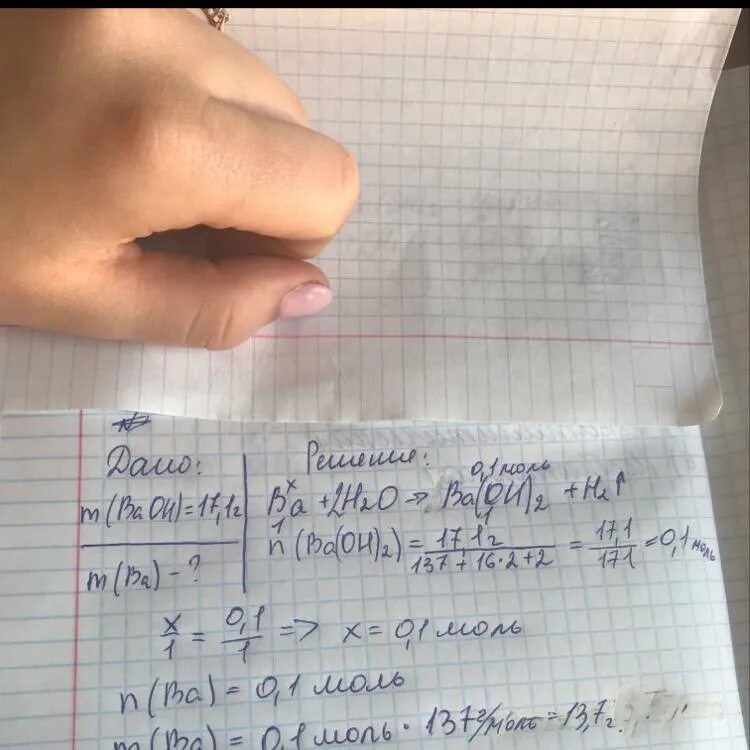 Дано:
m(BaOH)=17,1г
m(Ba) - ?
Решение:
x 0,1 моль
Ba + 2H2O → Ba(OH)2 + H2↑
1 1
n(Ba(OH)2) = 17,1г / 137 + 16·2 + 2 = 17,1 / 171 = 0,1 моль
x/1 = 0,1/1 => x = 0,1 моль
n(Ba) = 0,1 моль
m(Ba) = 0,1 моль · 137 г/моль = 13,7 г.